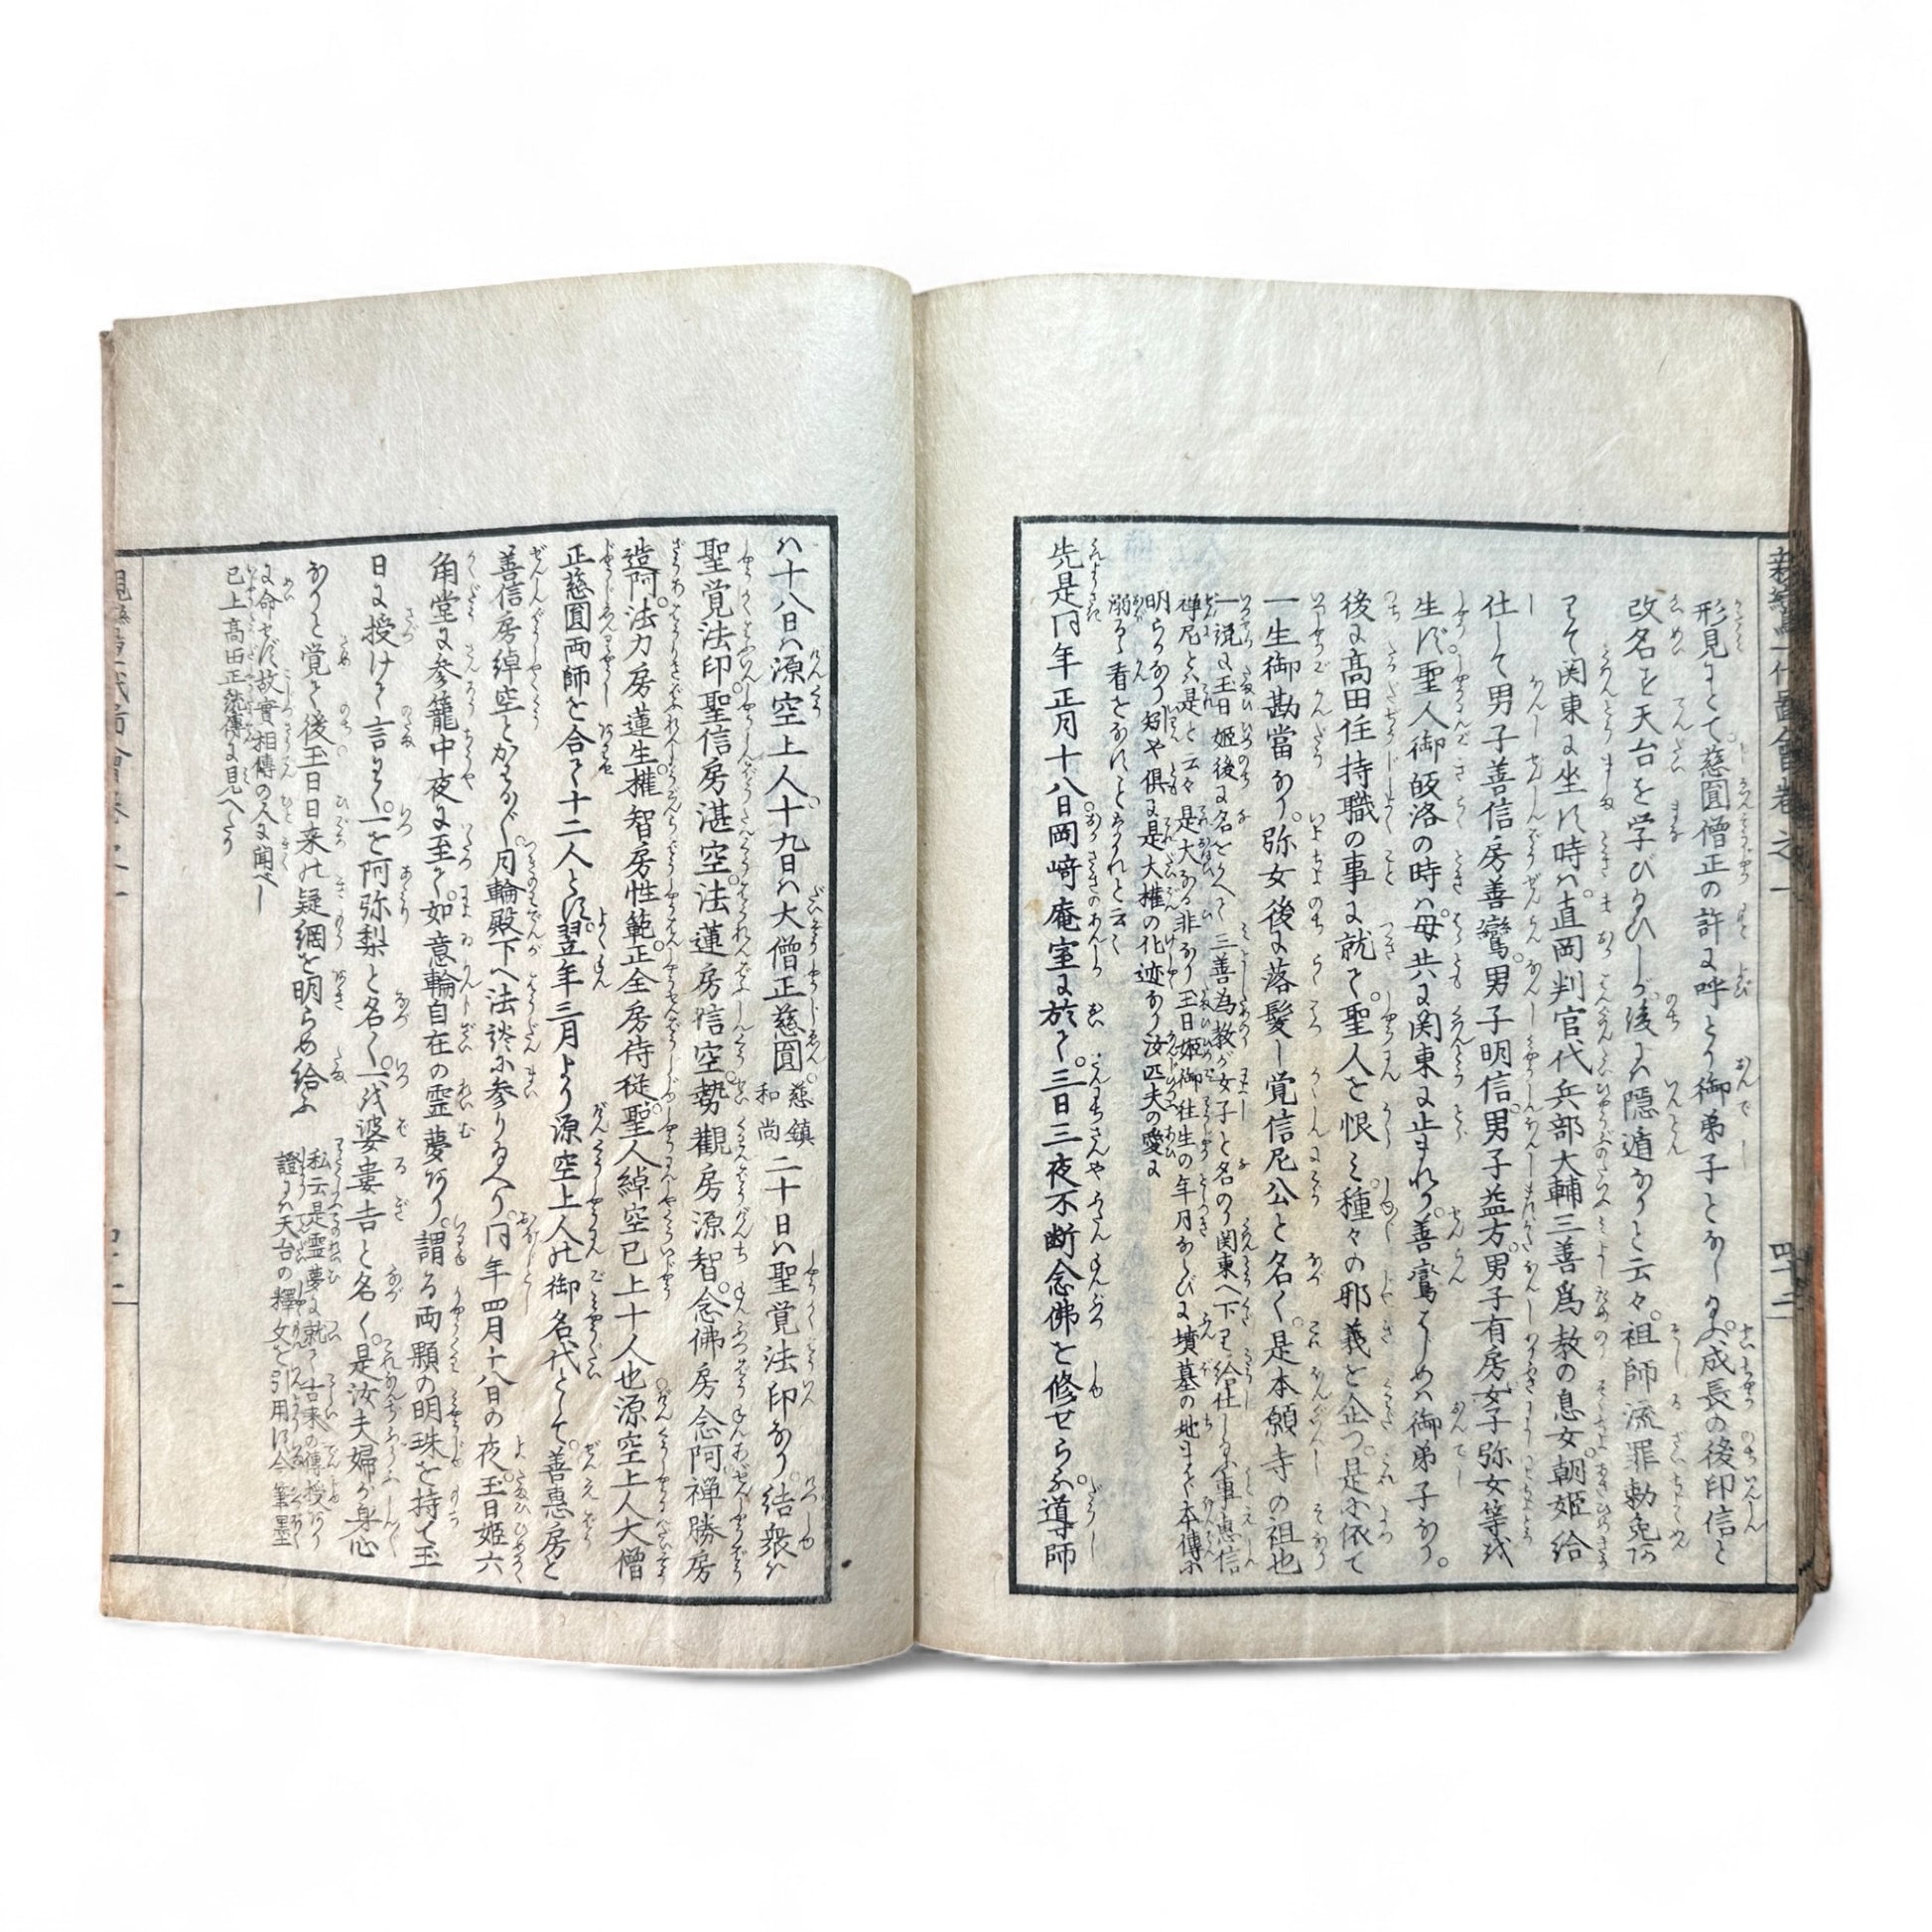 形見にとて慈圓僧正の許に呼とり御弟子となし給ふ成長の後印信と
改名を天台を学び給ひしが後には隠遁なりと云々。祖師流罪勅免
にて関東に坐す時は。直岡判官代兵部大輔三善為教の息女。朝姫給
仕して男子善信房善鸞。男子明信。男子益方。男子有房女子弥女等を
生ず。聖人御皈洛の時は。母共に関東に止まれり。善鸞はじめは御弟子なり。
後に高田住持職の事に就て。聖人を恨ミ種々の邪義を企つ。是に依て
一生御勘當なり。弥女後に落髪し覚信尼公と名く。是本願寺の祖也
一説に玉日姫後に名をかへて三善為教が女子と名のり関東へ下り給仕し給ふ事恵信
禅尼と云是と云々是大なる非なり玉日姫御往生の年月ならびに墳墓の地まで本傳に
明らかなり矧や倶に是大権の化迹なり汝匹夫の愛に
溺るゝ看をなすことなかれと云々
先是同年正月十八日岡﨑庵室に於て。三日三夜不断念佛を修せらる。導師
ハ十八日ハ源空上人。十九日ハ大僧正慈圓。慈鎮和尚二十日ハ聖覚法印なり。結衆ハ
聖覚法印。聖信房湛空。法蓮房信空。勢觀房源智。念佛房念阿禅勝房
造阿。法力房蓮生。権智房性範。正全房侍従。聖人綽空已上十人也。源空上人大僧
正慈圓両師を合て十二人とす。翌年三月より源空上人の御名代として。善恵房と
善信房綽空とかはる〴〵。月輪殿下へ法談に参り給へり。同年四月十八日の夜。玉日姫六
角堂に参籠中夜に至て。如意輪自在の霊夢あり。謂る両顆の明珠を持て玉
日に授けて言はく。一を阿弥梨と名く。一を婆婁吉と名く。是汝夫婦が身心
なりと覚て後玉日日来の疑網を明らめ給ふ
私云是霊夢に就て古来の傳授あり
證には天台の釋文を引用す今筆墨
に命せず故實相傳の人に聞べし
已上高田正統傳に見へたり